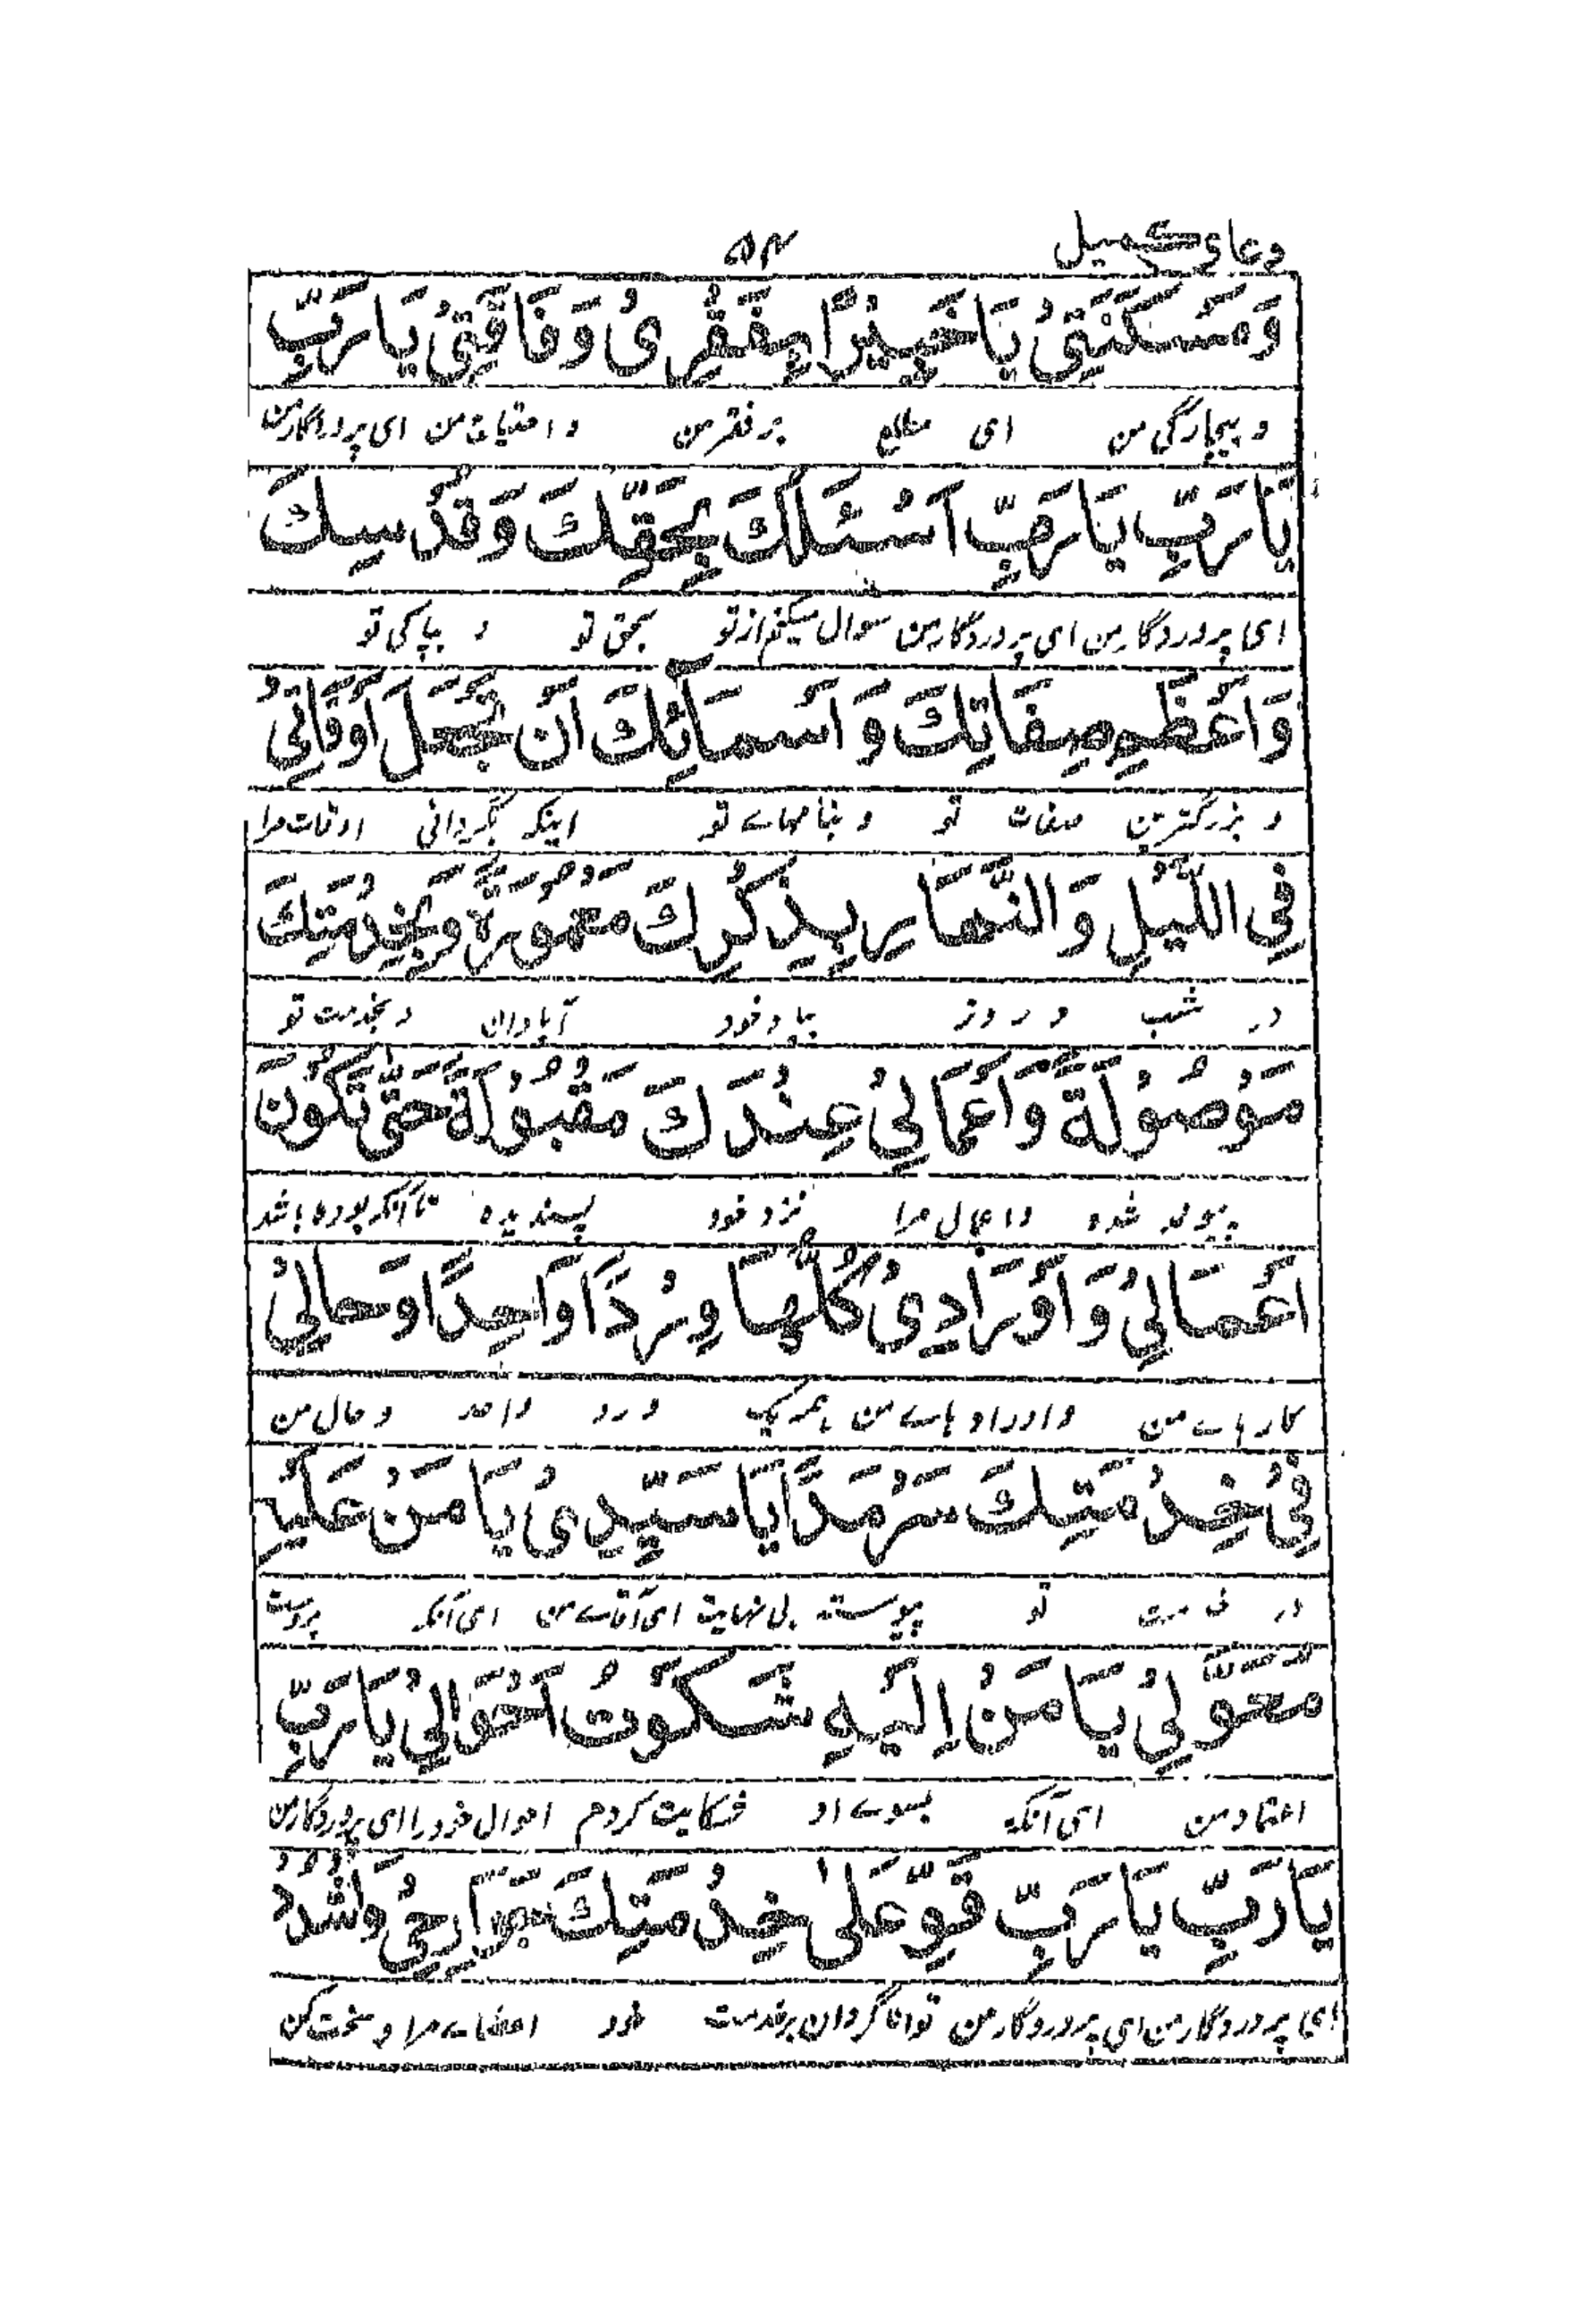 دعای کمیل
۵۴
وَمَسْكَنَتِيْ يَا خَبِيْرًا بِفَقْرِيْ وَفَاقَتِيْ يَا رَبِّ
و بیچارگی من ای مطلع بر فقر من و احتیاج من ای پروردگار من
يَا رَبِّ يَا رَبِّ اَسْئَلُكَ بِحَقِّكَ وَقُدْسِكَ
ای پروردگار من ای پروردگار من سوال میکنم از تو بحق تو و بپاکی تو
وَاَعْظَمِ صِفَاتِكَ وَاَسْمَائِكَ اَنْ تَجْعَلَ اَوْقَاتِيْ
و بزرگترین صفات تو و بنامهاے تو اینکه بگردانی اوقات مرا
فِي اللَّيْلِ وَالنَّهَارِ بِذِكْرِكَ مَعْمُوْرَةً وَبِخِدْمَتِكَ
در شب و روز بیاد خود آبادان و بخدمت تو
مَوْصُوْلَةً وَاَعْمَالِيْ عِنْدَكَ مَقْبُوْلَةً حَتّٰى تَكُوْنَ
پیوند شده و اعمال مرا نزد خود پسندیده تا آنکه بوده باشد
اَعْمَالِيْ وَاَوْرَادِيْ كُلُّهَا وِرْدًا وَاحِدًا وَحَالِيْ
کارهاے من و اورادهاے من همه یک ورد واحد و حال من
فِيْ خِدْمَتِكَ سَرْمَدًا يَا سَيِّدِيْ يَا مَنْ عَلَيْهِ
در خدمت تو پیوسته بی نهایت ای آقاے من ای آنکه بروست
مُعَوَّلِيْ يَا مَنْ اِلَيْهِ شَكَوْتُ اَحْوَالِيْ يَا رَبِّ
اعتماد من ای آنکه بسوے او شکایت کردم احوال خود را ای پروردگار من
يَا رَبِّ يَا رَبِّ قَوِّ عَلٰى خِدْمَتِكَ جَوَارِحِيْ وَاشْدُدْ
ای پروردگار من ای پروردگار من توانا گردان بر خدمت خود اعضاے مرا و سخت کن